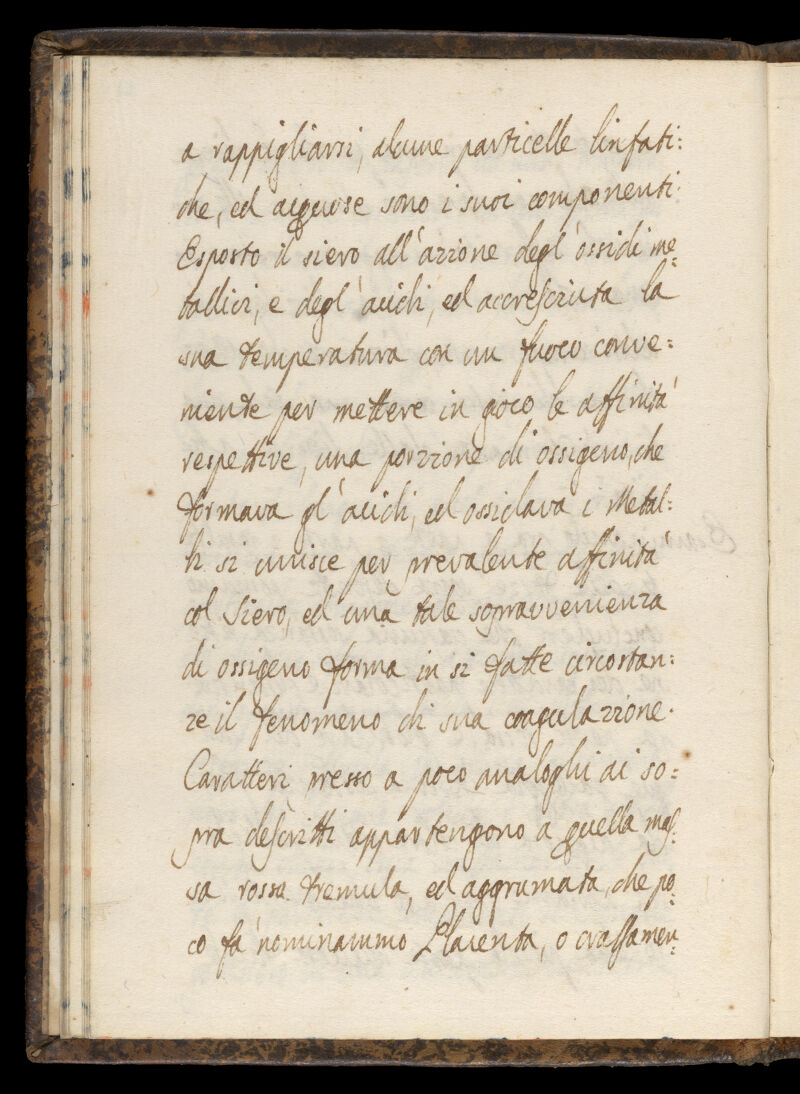 a rappigliarsi, alcune particelle linfati:
che, ed acquose sono i suoi componenti.
Esposto il siero all'azione degl'ossidi me:
tallici, e degl'acidi, ed accresciuta la
sua temperatura con un fuoco conve:
niente per mettere in gioco le affinita'
respettive, una porzione di ossigeno, che
formava gl'acidi, ed ossidava i Metal:
li si unisce per prevalente affinita'
col Siero, ed una tale sopravvenienza
di ossigeno forma in si fatte circostan:
ze il fenomeno di sua coagulazione.
Caratteri presso a poco analoghi ai so:
pra descritti appartengono a quella mas:
sa rossa tremula, ed aggrumata, che po:
co fa' nominammo Placenta, o crassamen: